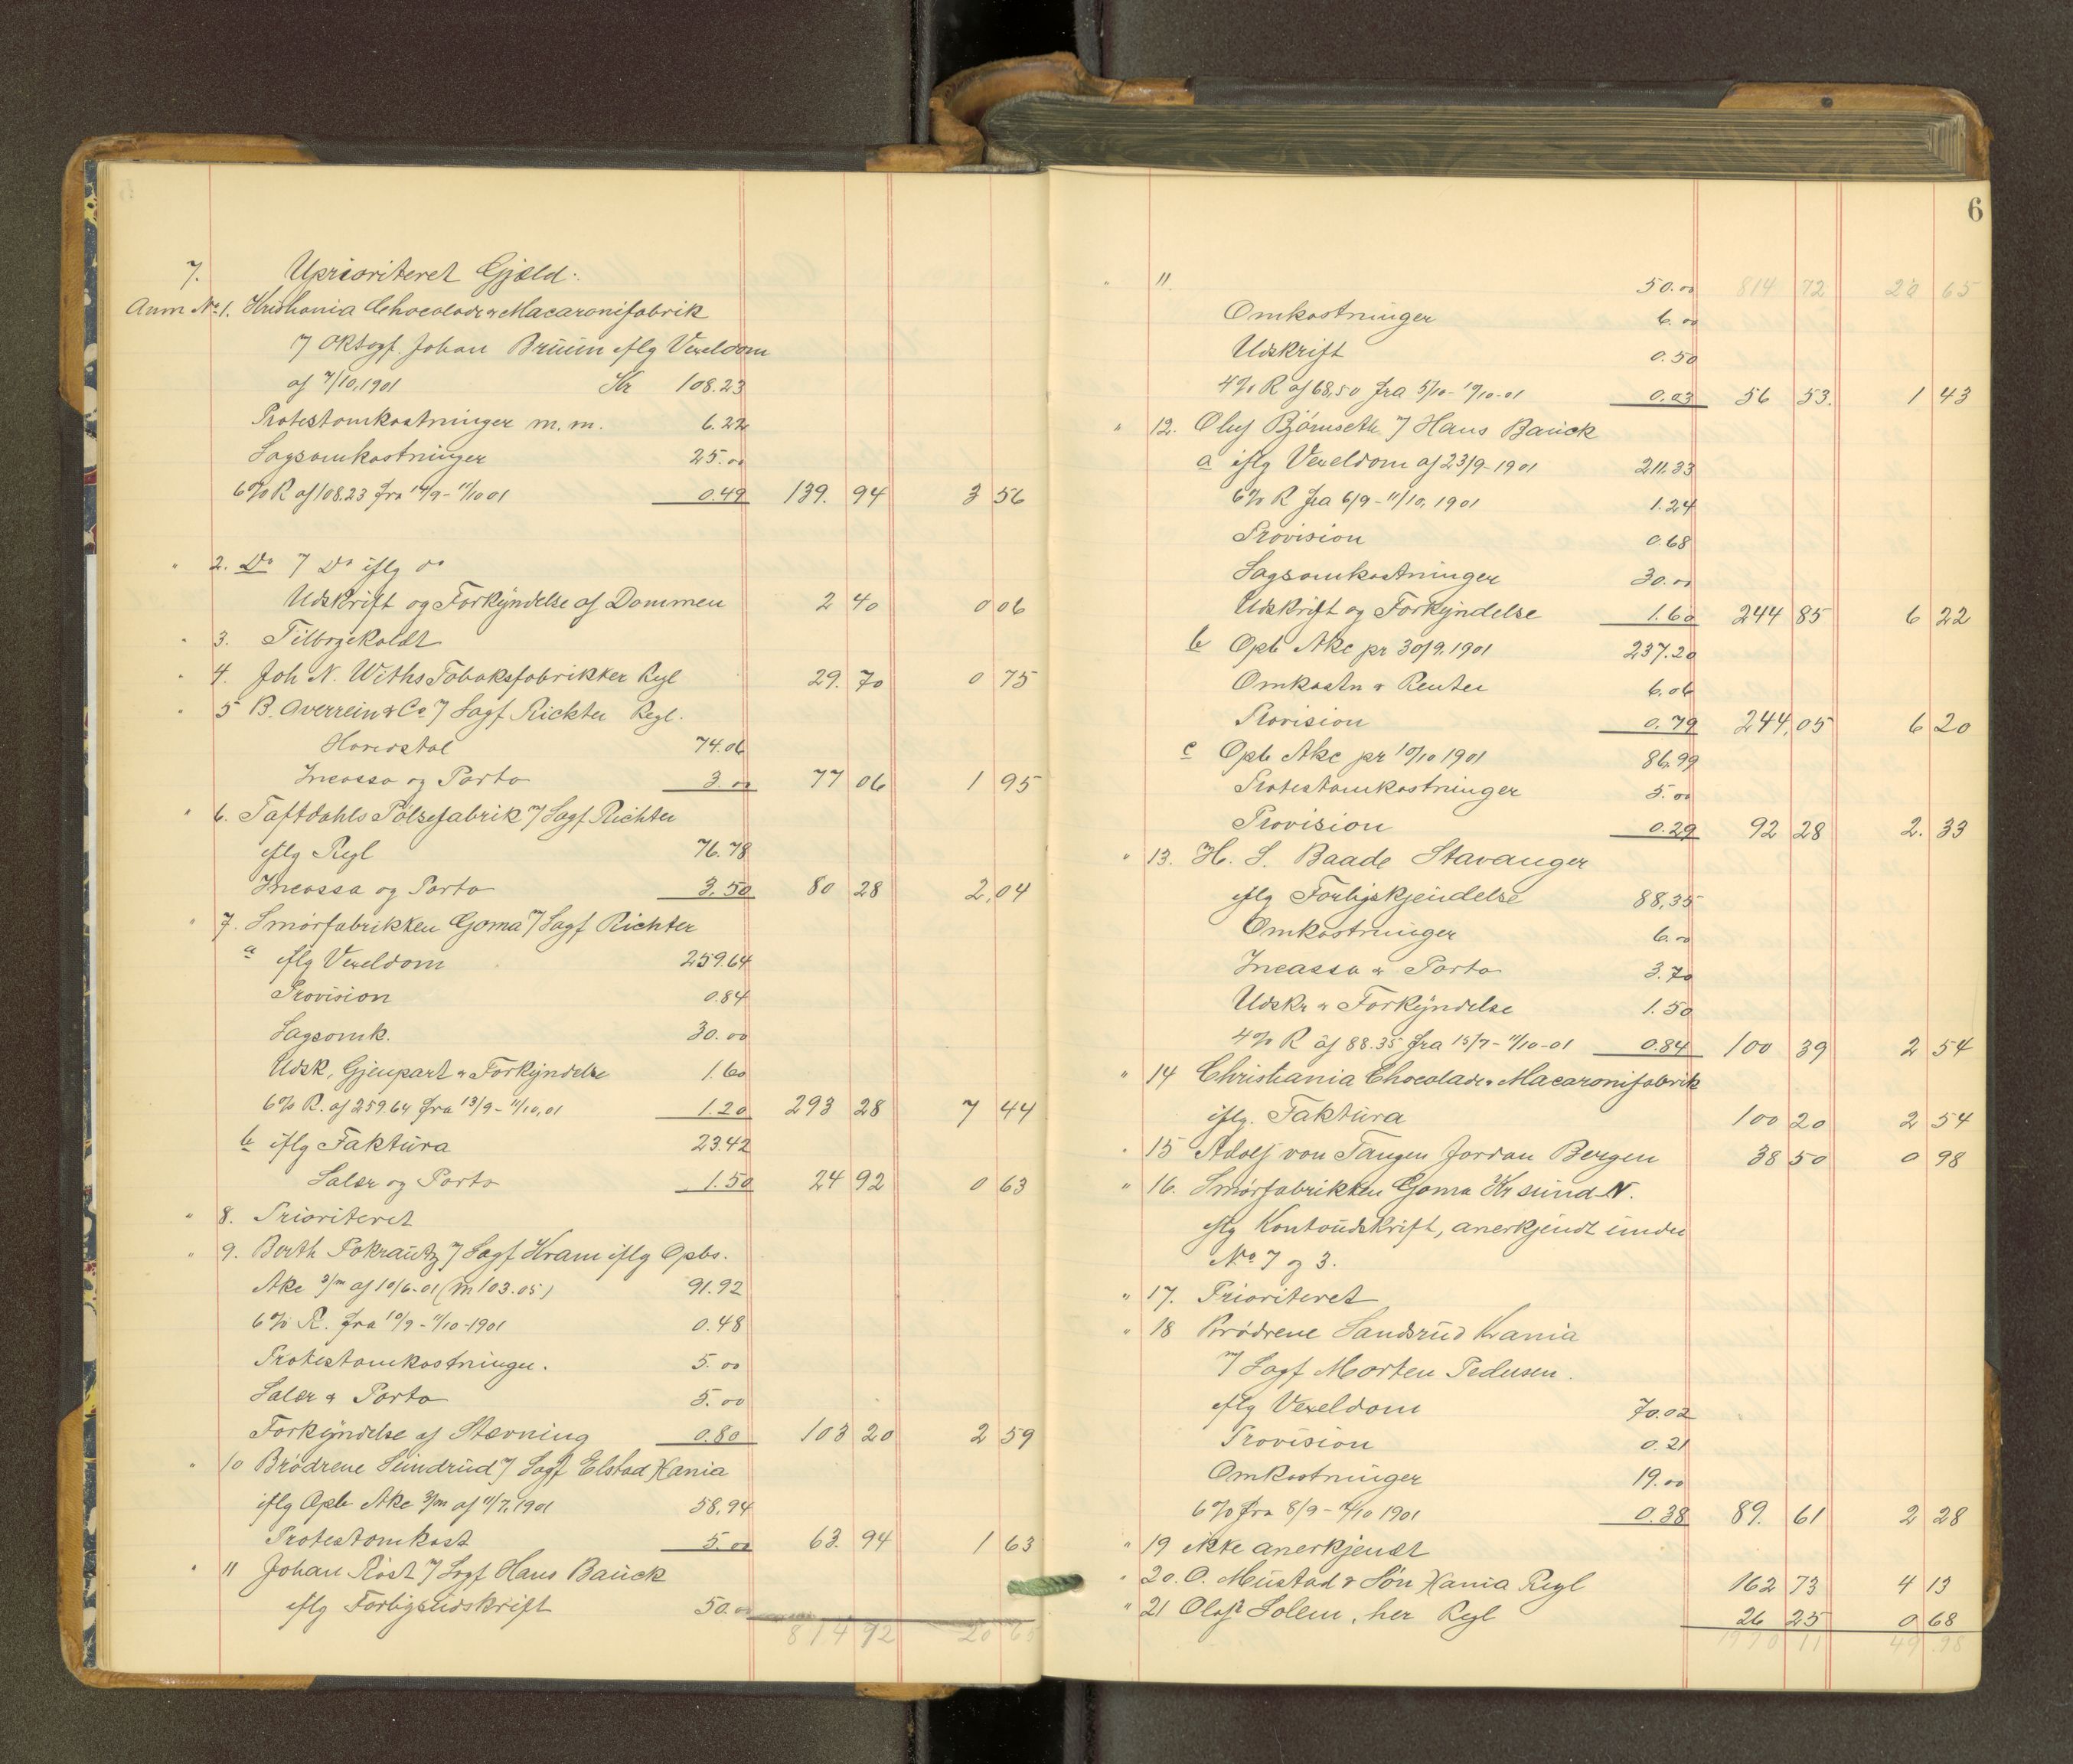 7. Uprioriteret Gjæld:
Anm No 1. Kristiania Chocolade & Macaronifabrik
v/ ORSagf. Johan Bruun iflg Vexeldom
af 7/10, 1901 Kr 108.23
Protestomkostninger m. m. 6.22
Sagsomkostninger 25.00
6% R af 108.23 fra 14/9 - 11/10 01 0.49 139. 94 3 56
" 2. Do v/ Do iflg do
Udskrift og Forkyndelse af Dommen 2 40 0 06
" 3. Tilbagekaldt
" 4. Joh N. Withs Tobaksfabrikker Rgl 29. 70 0 75
" 5 B. Averrein & Co v/ Sagf Rickter Regl.
Hovedstol 74.06
Incasso og Porto 3.00 77 06 1 95
" 6. Taftdahls Pølsefabrik v/ Sagf Richter
iflg Regl 76.78
Incasso og Porto 3.50 80 28 2,04
" 7. Smørfabrikken Goma v/ Sagf Richter
a iflg Vexeldom 259.64
Provision 0.84
Sagsomk. 30.00
Udsk, Gjenpart & Forkyndelse 1.60
6% R. af 259.64 fra 13/9 - 11/10, 01 1.20 293 28 7 44
b iflg Faktura 23.42
Salær og Porto 1.50 24 92 0 63
" 8. Prioriteret
" 9. Berth Pokrautz v/ Sagf Hram iflg Opbr.
Akc 3/m af 10/6-01 (m 103.05) 91.92
6% R. fra 10/9 - 11/10-1901 0.48
Protestomkostninger. 5.00
Salær & Porto 5.00
Forkyndelse af Stævning 0.80 103 20 2 59
" 10 Brødrene Sundrud v/ Sagf Elstad Xania
iflg Opb Akc 3/m af 11/7, 1901 58,94
Protestomkost 5.00 63. 94 1 63
" 11 Johan Röst v/ Sagf Hans Bauck
iflg Forligsudskrift 50.00
814 72 20 65
6
" 11. 50.00 814 72 20 65
Omkostninger 6.00
Udskrift 0.50
4% R af 68,50 fra 5/10 - 11/10-01 0.03 56 53. 1 43
" 12. Oluf Bjørnseth v/ Hans Bauck
a iflg Vexeldom af 23/9-1901 211.33
6% R fra 6/9 - 11/10, 1901 1.24
Provision 0.68
Sagsomkostninger 30.00
Udskrift og Forkyndelse 1.60 244 85 6 22
b Opb Akc pr 30/9. 1901 237.20
Omkostn & Renter 6.06
Provision 0.79 244,05 6 20
c Opb Akc pr 10/10 1901 86.99
Protestomkostninger 5.00
Provision 0.29 92 28 2. 33
" 13. H. S. Baade Stavanger
iflg Forligskjendelse 88,35
Omkostninger 6.00
Incasso & Porto 3.70
Udskr & Forkyndelse 1.50
4% R af 88.35 fra 15/7 - 11/10-01 0.84 100 39 2 54
" 14 Christiania Chocolade & Macaronifabrik
iflg. Faktura 100 20 2 54
" 15 Adolf von Tangen Jordan Bergen 38 50 0 98
" 16. Smørfabrikken Goma Kr sund N.
iflg Kontoudskrift, anerkjendt under
No 7 og 3.
" 17. Prioriteret
" 18 Brødrene Sandsrud Kr ania
v/ Sagf Morten Pedersen.
iflg Vexeldom 70.02
Provision 0.21
Omkostninger 19.00
6% fra 8/9 - 11/10 1901 0.38 89. 61 2 28
" 19 ikke anerkjendt
" 20. O. Mustad & Søn Xania Regl 162 73 4 13
" 21 Olaf Solem, her Rgl 26 25 0 68
1970 11 49.98